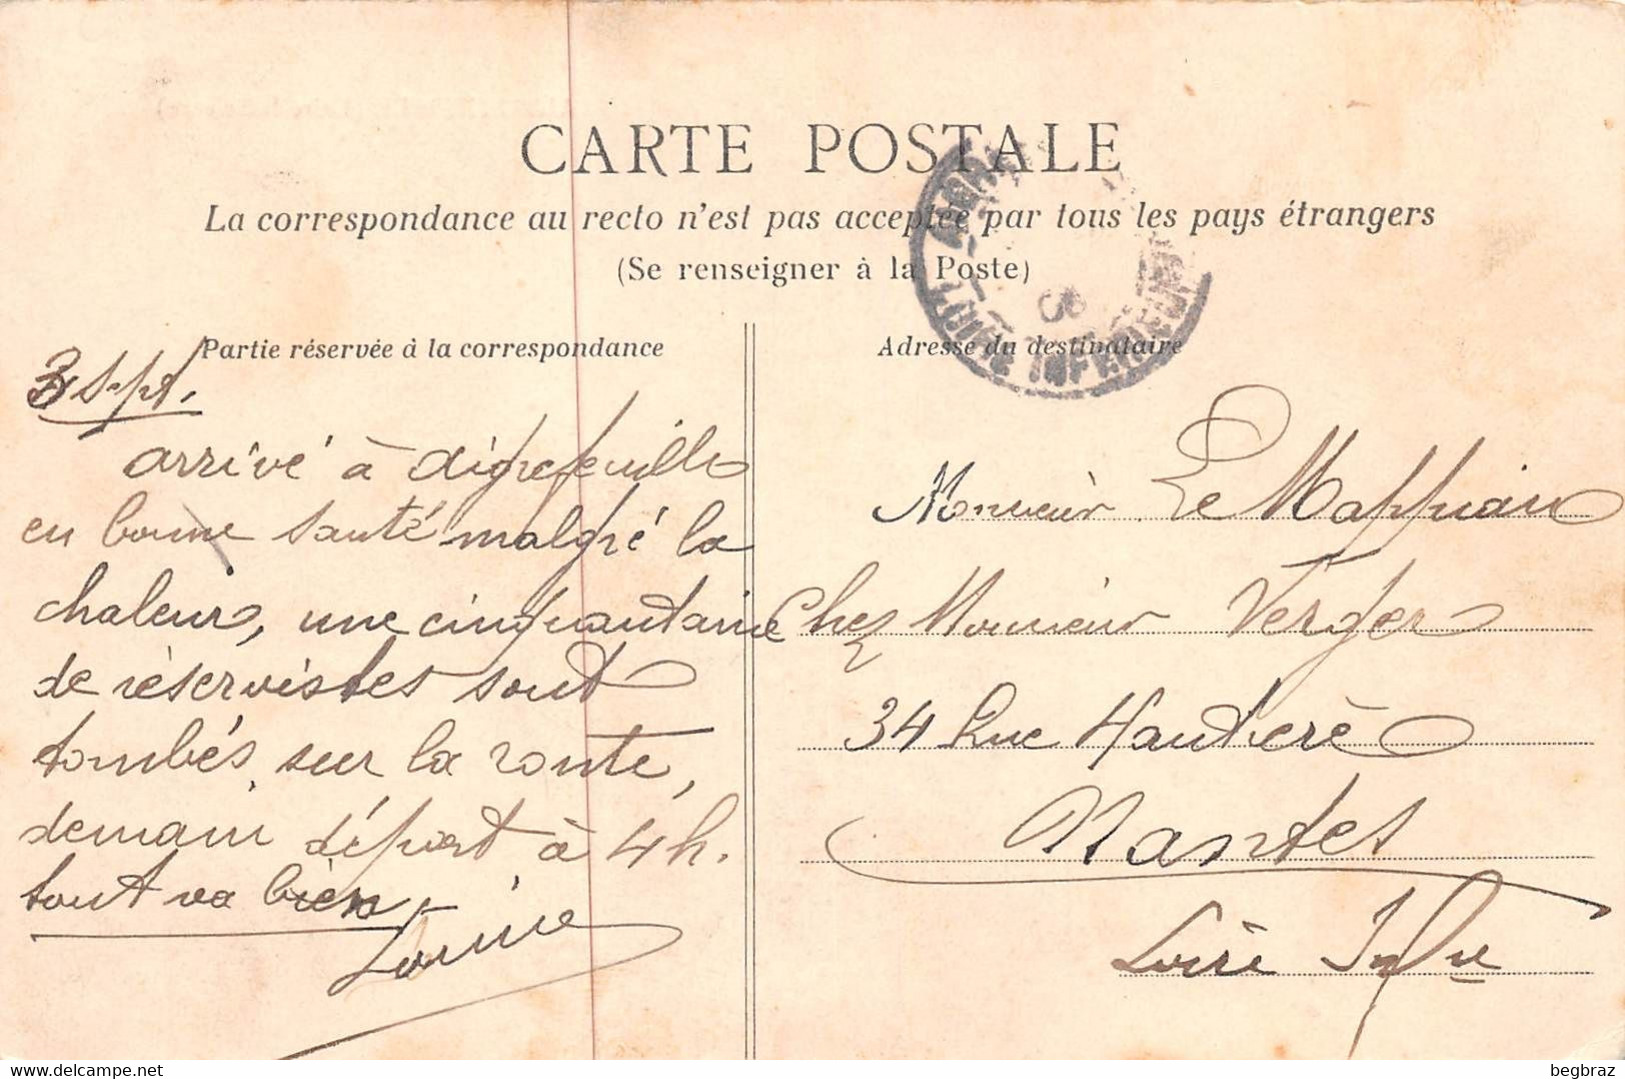 CARTE POSTALE
La correspondance au recto n'est pas acceptée par tous les pays étrangers
(Se renseigner à la Poste)
Partie réservée à la correspondance
3 Sept.
arrivé à aigrefeuille
en bonne santé malgré la
chaleur, une cinquantaine
de réservistes sont
tombés sur la route,
demain départ à 4h.
tout va bien
Adresse du destinataire
LOIRE INFERIEURE
Monsieur Le
Chez Monsieur Verger
34 Rue Hautière
Nantes
Loire Infre
delcampe.net
begbraz